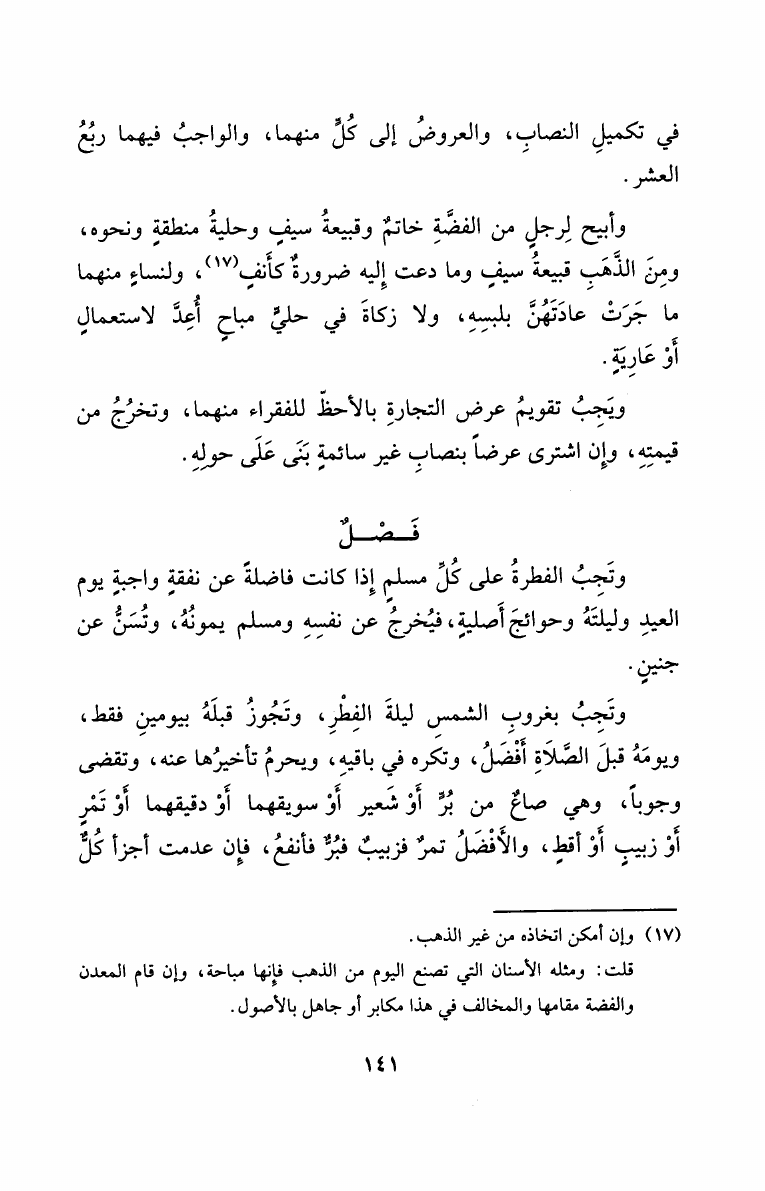 في تكميلِ النصابِ، والعروضُ إلى كُلٍّ منهما، والواجبُ فيهما ربُعُ
العشر.
وأبيح لِرجلٍ من الفضَّةِ خاتمٌ وقبيعةُ سيفٍ وحليةُ منطقةٍ ونحوه،
ومِنَ الذَّهَبِ قبيعةُ سيفٍ وما دعت إليه ضرورةٌ كأنفٍ(١٧)، ولنساءٍ منهما
ما جَرَتْ عادَتَهُنَّ بلبسِهِ، ولا زكاةَ في حليٍّ مباحٍ أُعِدَّ لاستعمالٍ
أَوْ عَارِيَةٍ.
ويَجِبُ تقويمُ عرض التجارةِ بالأحظّ للفقراء منهما، وتخرُجُ من
قيمتِهِ، وإن اشترى عرضاً بنصابِ غير سائمةٍ بَنَى عَلَى حولِهِ.
فَـصْـلٌ
وتَجِبُ الفطرةُ على كُلِّ مسلمٍ إذا كانت فاضلةً عن نفقةٍ واجبةٍ يوم
العيدِ وليلتَهُ وحوائجَ أصليةٍ، فيُخرجُ عن نفسِهِ ومسلم يمونُهُ، وتُسَنُّ عن
جنينٍ.
وتَجِبُ بغروبِ الشمسِ ليلةَ الفِطْرِ، وتَجُوزُ قبلَهُ بيومينِ فقط،
ويومَهُ قبلَ الصَّلَاةِ أَفْضَلُ، وتكره في باقيهِ، ويحرمُ تأخيرُها عنه، وتقضى
وجوباً، وهي صاعٌ من بُرٍّ أَوْ شَعير أَوْ سويقهما أَوْ دقيقهما أَوْ تَمْرٍ
أَوْ زبيبٍ أَوْ أقطٍ، والأَفْضَلُ تمرٌ فزبيبٌ فبُرٌّ فأنفعُ، فإن عدمت أجزأ كُلُّ
(١٧) وإن أمكن اتخاذه من غير الذهب.
قلت: ومثله الأسنان التي تصنع اليوم من الذهب فإنها مباحة، وإن قام المعدن
والفضة مقامها والمخالف في هذا مكابر أو جاهل بالأصول.
١٤١